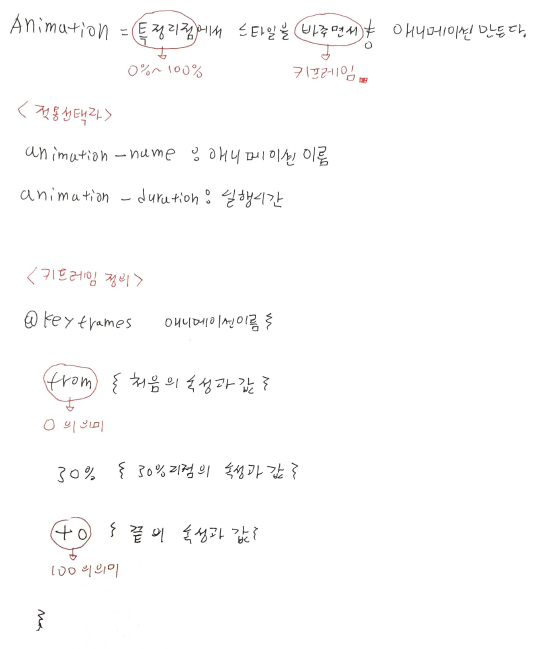 Animation = 특정지점에서 스타일을 바꾸면서 애니메이션 만든다.
0%~100% 키프레임
<적용선택자>
animation-name : 애니메이션 이름
animation-duration : 실행시간
<키프레임 정의>
@keyframes 애니메이션이름 {
from { 처음의 속성과 값 }
0의 의미
30% { 30%지점의 속성과 값 }
to { 끝의 속성과 값 }
100의 의미
}